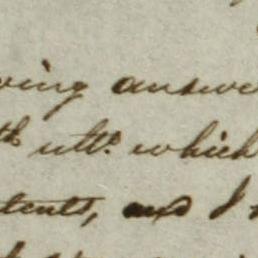 ving answe
th ulto. which
tents, and I